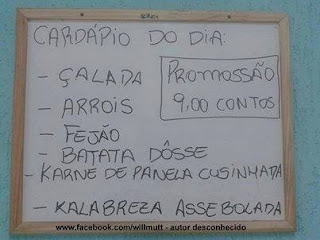 CARDÁPIO DO DIA:
- ÇALADA
- ARROIS
- FEJÃO
- BATATA DÔSSE
- KARNE DE PANELA CUSINHADA
- KALABREZA ASSEBOLADA
PROMOSSÃO
9,00 CONTOS
www.facebook.com/willmutt - autor desconhecido